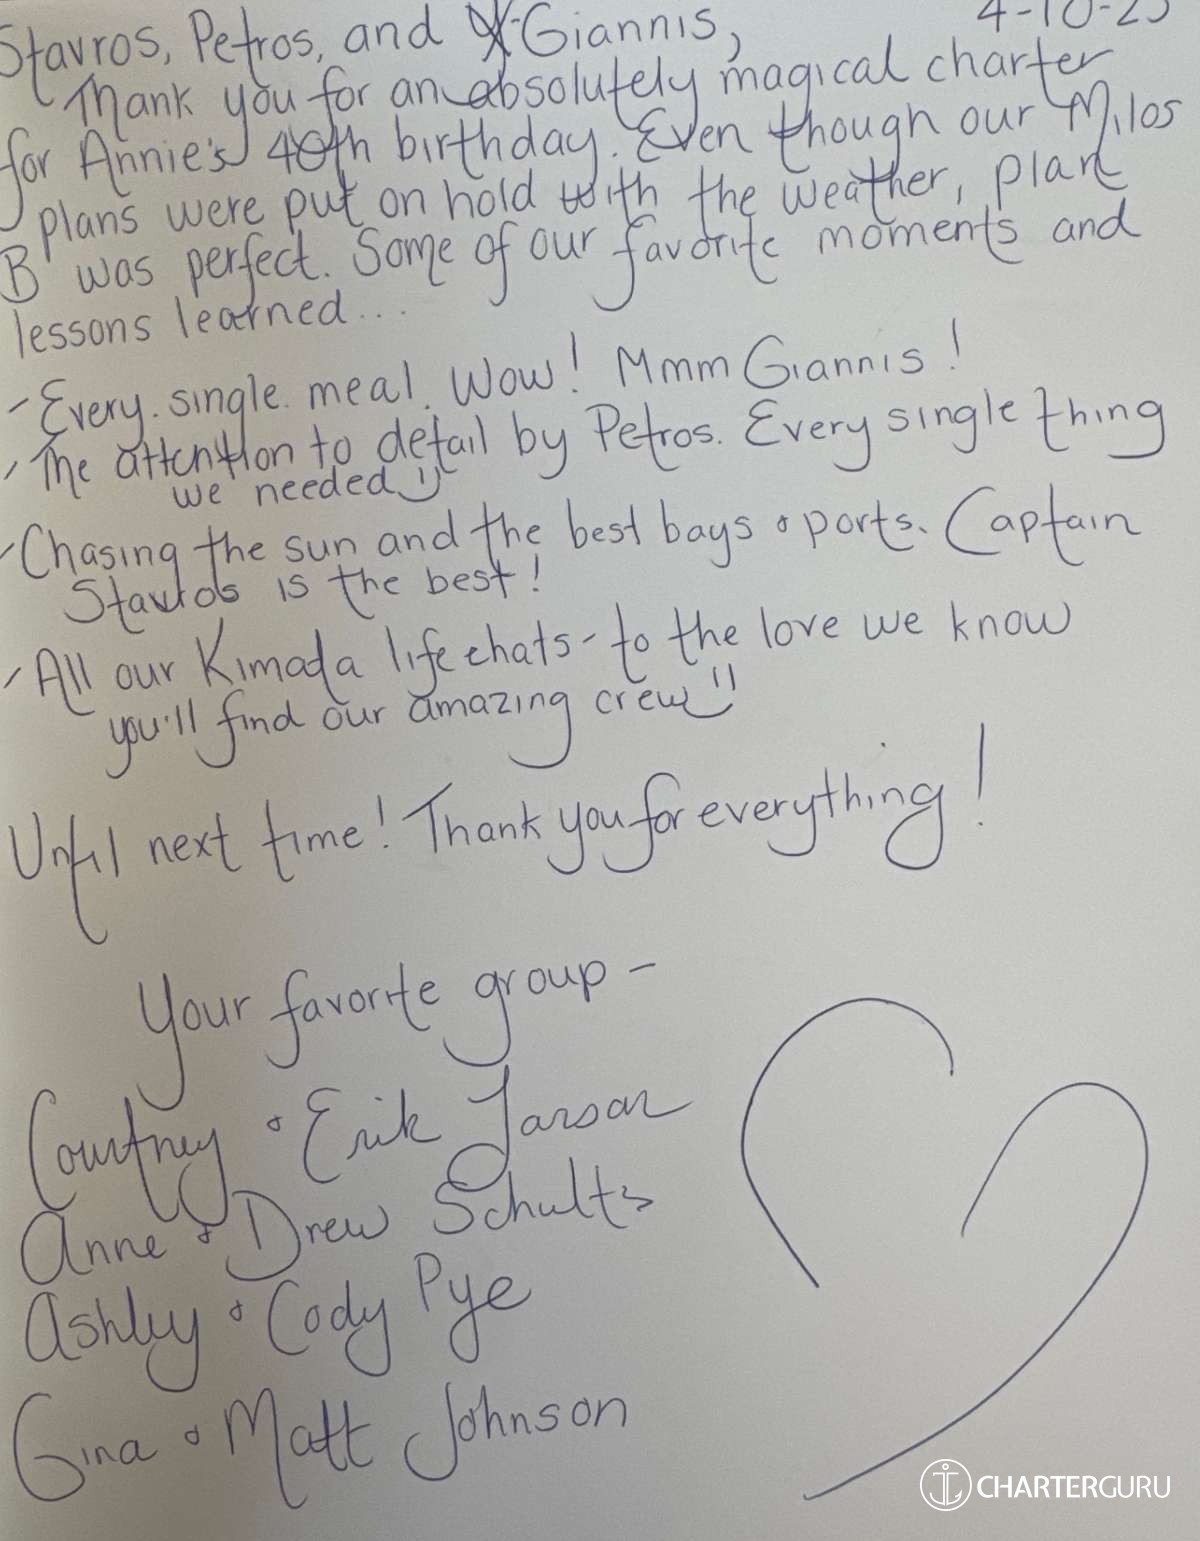 4-10-25
Stavros, Petros, and Giannis,
Thank you for an absolutely magical charter
for Annie's 40th birthday. Even though our Milos
plans were put on hold with the weather, plan
B was perfect. Some of our favorite moments and
lessons learned...
- Every. single. meal. Wow! Mmm Giannis!
- The attention to detail by Petros. Every single thing
we needed :)
- Chasing the sun and the best bays & ports. Captain
Stavros is the best!
- All our Kimata life chats - to the love we know
you'll find our amazing crew :)
Until next time! Thank you for everything!
Your favorite group -
Courtney & Erik Larson
Anne & Drew Schultz
Ashley & Cody Pye
Gina & Matt Johnson
CHARTERGURU